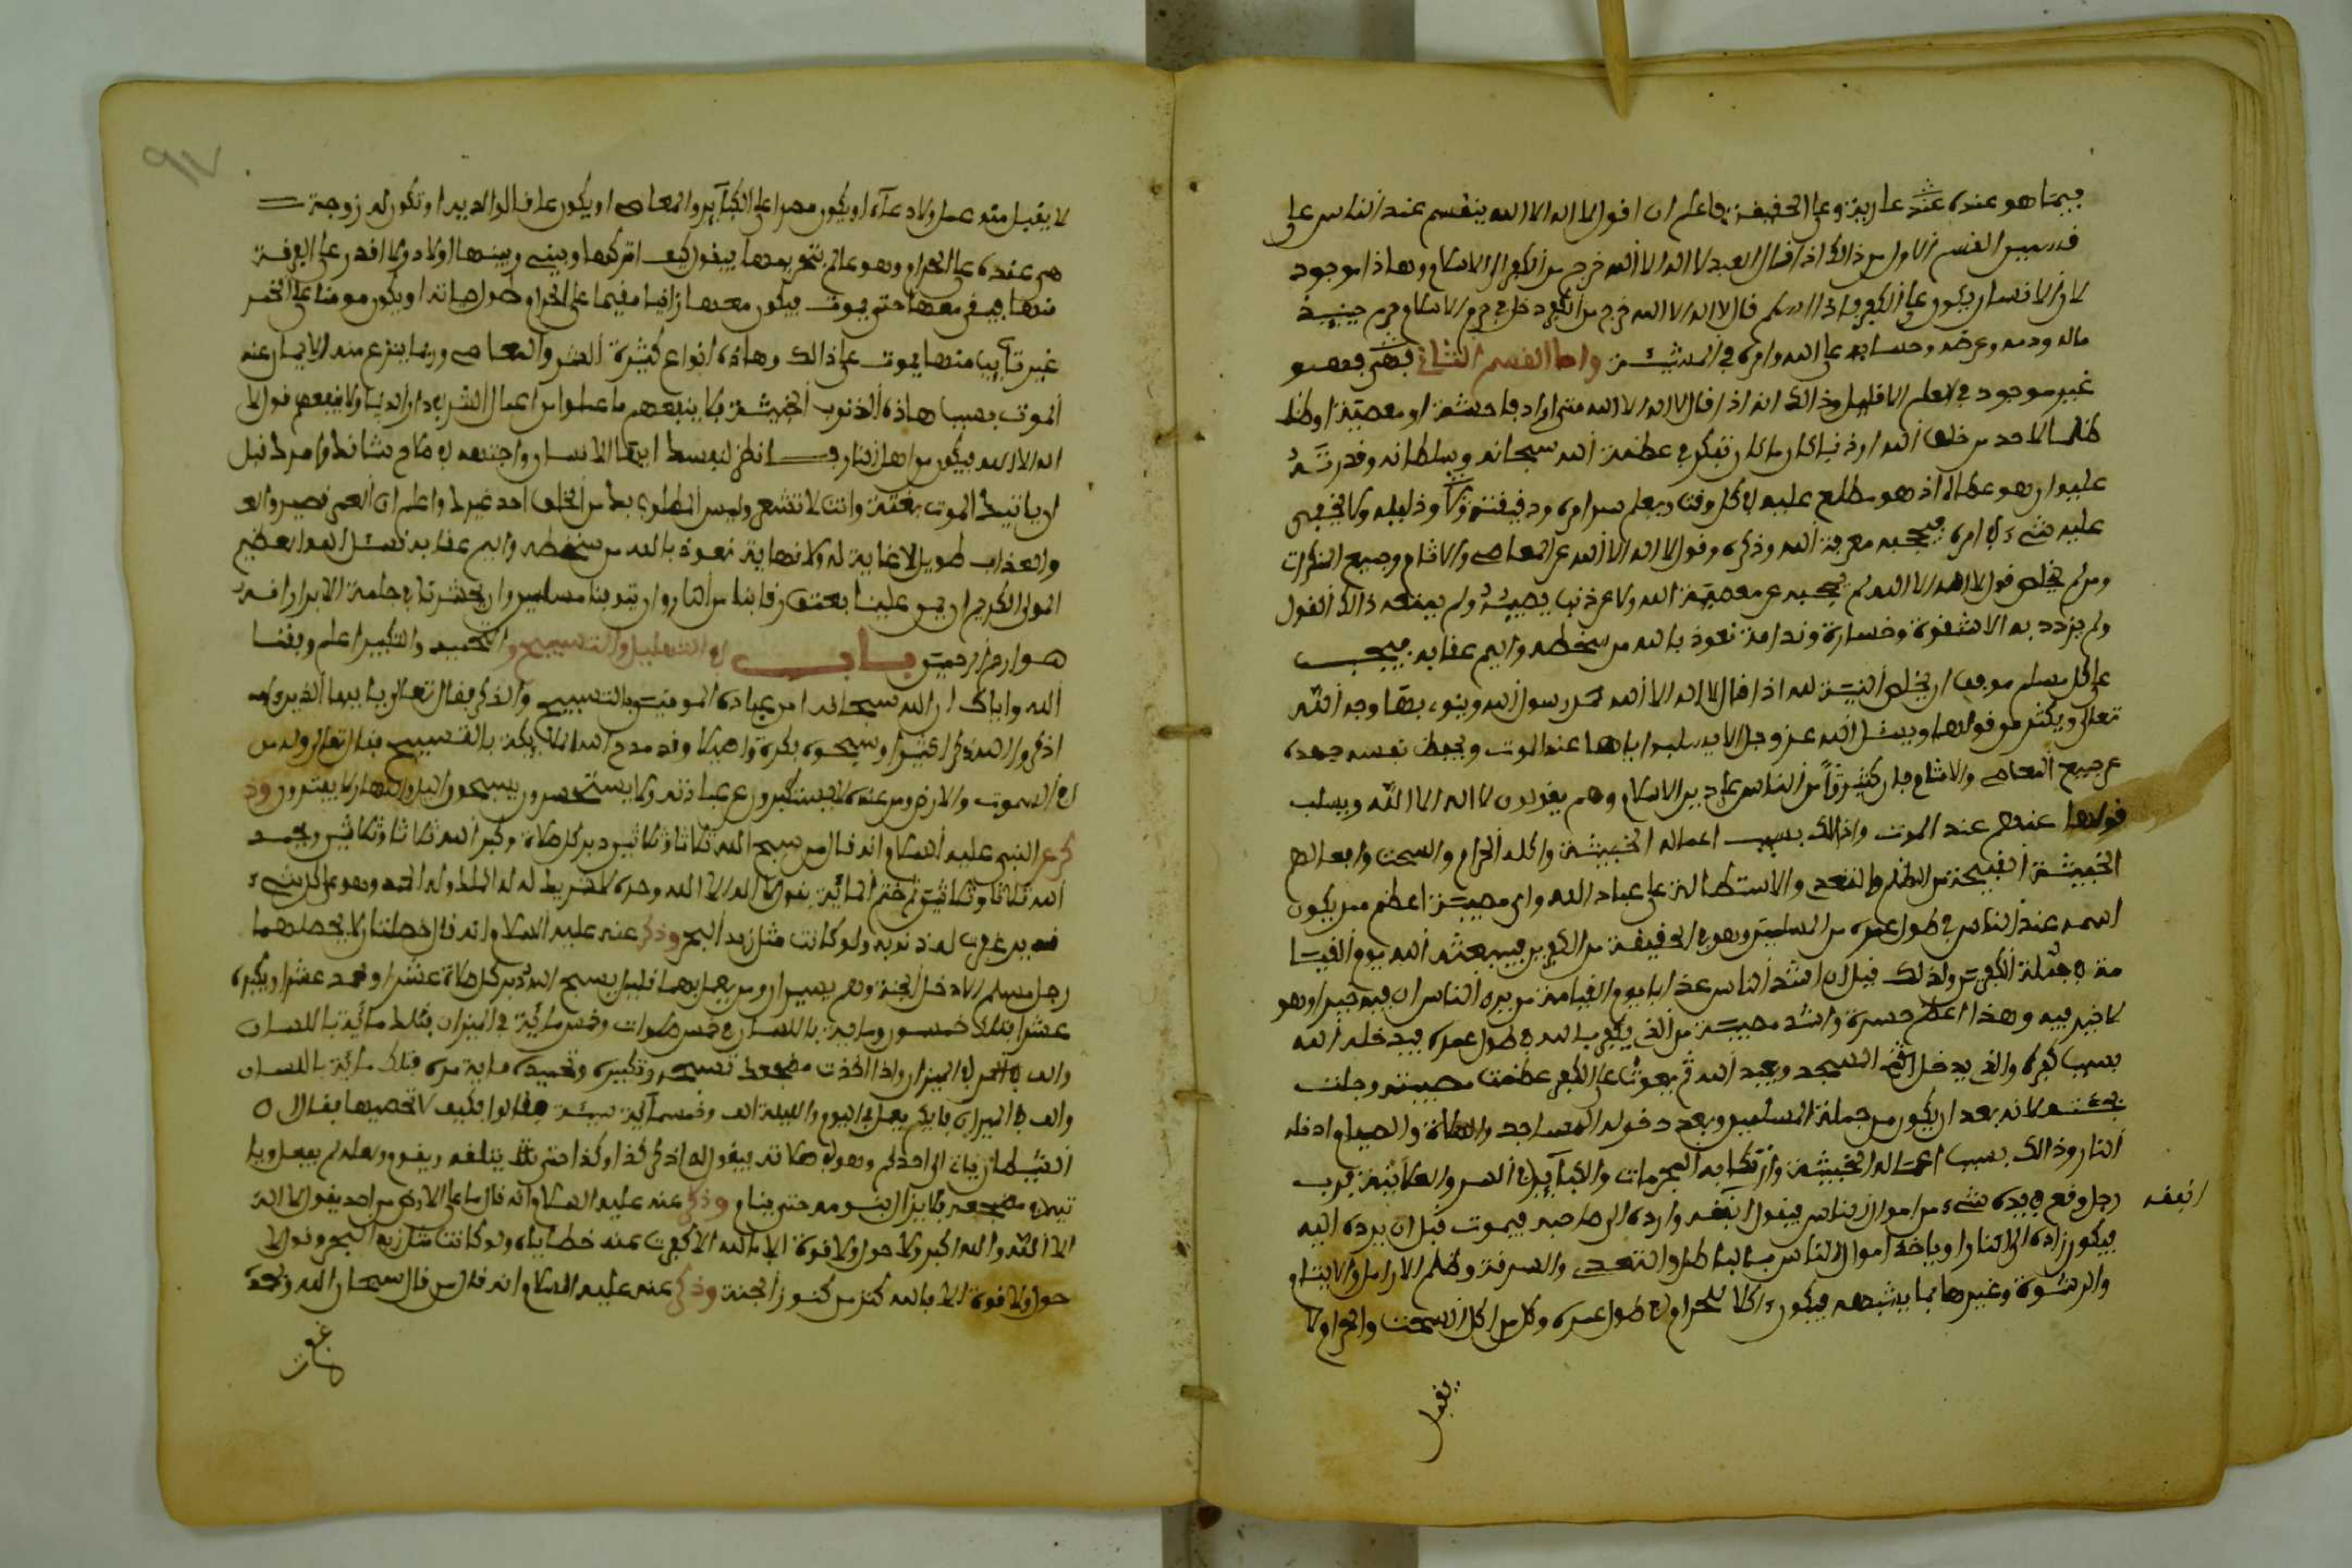 فيما هو عنده عند عارية وعلى الحقيقة فاعلم ان اقول لا اله الا الله ينقسم عند الناس على
قسمين القسم الاول من ذالك اذا قال العبد لا اله الا الله خرج من الكفر الى الاسلام وهاذا موجود
لان الانسان يكون على الكفر فاذا قال لا اله الا الله خرج من الكفر دخل في حرم الاسلام وحرم حينيذ
ماله ودمه وعرضه وحسابه على الله وامره في المشيئة واما القسم الثاني فهو
غير موجود في العلم الا قليل وذالك انه اذا قال لا اله الا الله متى اراد فاحشة او معصية او ظلم
ظلما لاحد من خلق الله او ذنبا كان ما كان تفكر في عظمة الله سبحانه وسلطانه وقدرته
عليه وان هو عصاه اذ هو مطلع عليه في كل وقت ويعلم سر امره ودقيقته وذليله ولا يخفى
عليه شيء في امره فيحجبه معرفة الله وذكره وقول لا اله الا الله عن المعاصي والاثام وجميع المنكرات
ومن لم يخلص قول لا اله الا الله لم يحجبه عن معصية الله ولا عن ذنب يصيبه ولم ينفعه ذالك القول
ولم يزدد به الا شقوة وخسارة وندامة نعوذ بالله من سخطه واليم عقابه فيجب
على كل مسلم موفق ان يخلص النية لله اذا قال لا اله الا الله محمد رسول الله وينوي بها وجه الله
تعالى ويكثر من قولها ويسئل الله عز وجل الا يسلبه اياها عند الموت ويحفظ نفسه جهده
عن جميع المعاصي والاثام فان كثيرا من الناس على دين الاسلام وهم يقولون لا اله الا الله ويسلب
قولها عنهم عند الموت وذالك بسبب اعماله الخبيثة واكله الحرام والسحت وافعالهم
الخبيثة القبيحة من الظلم والتعدي والاستطالة على عباد الله واي مصيبة اعظم ممن يكون
اسمه عند الناس في طول عمره من المسلمين وهو في الحقيقة من الكافرين فيبعثه الله يوم القيا
مة في جملة الكفرة ولذلك قيل ان اشد الناس عذابا يوم القيامة من يرى الناس ان فيه خيرا وهو
لا خير فيه وهذا اعظم حسرة واشد مصيبة من الذي يكفر بالله في طول عمره فيدخله الله
بسبب كفره والذي يدخل المسجد ويعبد الله ثم يموت على الكفر عظمت مصيبته وجلت
لانه بعد ان يكون من جملة المسلمين وبعد دخوله المساجد والصلاة والصيام ادخله
النار وذالك بسبب اعماله الخبيثة وارتكابه المحرمات والكبآير في السر والعلانية فرب
رجل وقع في يده شيء من اموال الناس فيقول انفقه وارده الى صاحبه فيموت قبل ان يرده اليه
انفقه
فيكون زاده الى النار او ياخذ اموال الناس بالباطل والتعدي والسرقة وظلم الارامل والايتام
والرشوة وغيرها مما يشبهه فيكون اكلا للحرام في طول عمره وكل من اكل السحت والحرام لا
يقبل
٩٧
لا يقبل منه عمل ولا دعآء او يكون مصرا على الكبآير والمعاصي او يكون عاقا لوالديه او تكون له زوجة
هي عنده على الحرام وهو عالم بتحريمها فيقول كيف اتركها وبيني وبينها اولاد ولا اقدر على الفرقة
منها فيبقى معها حتى يموت فيكون معها زانيا مقيما على الحرام طول حياته او يكون مدمنا على الخمر
غير تايب منها يموت على ذالك وهاذه انواع كثيرة الشر والمعاصي وربما ينزع منه الايمان عند
الموت بسبب هاذه الذنوب الخبيثة فلا ينفعهم ما عملوا من اعمال البر في دار الدنيا ولا ينفعهم قول لا
اله الا الله فيكون من اهل النار فـانظر لنفسك ايها الانسان واجتهد في خلاص نشاطك وامرك قبل
ان ياتيك الموت بغتة وانت لا تشعر وليس المطلوب بك من الخلق احد غيرك واعلم ان العمر قصير والعـ
والعذاب طويل لا غاية له ولا نهاية نعوذ بالله من سخطه واليم عقابه نسئل الله العظيم
المولى الكريم ان يمن علينا بعتق رقابنا من النار وان يتوفينا مسلمين وان يحشرنا في جملة الابرار انه
هو ارحم الرحمين بـاب في التهليل والتسبيح والتحميد والتكبير اعلم وفقنا
الله واياك ان الله سبحانه امر عباده المومنين بالتسبيح والذكر فقال تعالى يا ايها الذين ءامنوا
اذكروا الله ذكرا كثيرا وسبحوه بكرة واصيلا وقد مدح الله الملايكة بالتسبيح فقال تعالى وله من
في السموت والارض ومن عنده لا يستكبرون عن عبادته ولا يستحسرون يسبحون اليل والنهار لا يفترون وذ
كر عن النبي عليه السلام انه قال من سبح الله ثلاثا وثلاثين دبر كل صلاة وكبر الله ثلاثا وثلاثين وحمد
الله ثلاثا وثلاثين ثم ختم المائة بقول لا اله الا الله وحده لا شريك له له الملك وله الحمد وهو على كل شيء
قدير غفرت له ذنوبه ولو كانت مثل زبد البحر وذكر عنه عليه السلام انه قال خصلتان لا يحصلهما
رجل مسلم الا دخل الجنة وهم يسير ومن يعمل بهما قليل يسبح الله دبر كل صلاة عشرا ويحمد عشرا ويكبره
عشرا فتلك خمسون وماية باللسان في خمس صلوات وخمس مائة في الميزان فتلك مائة باللسان
والف في الميزان واذا اخذت مضجعك تسبحه وتكبره وتحميده ماية مرة فتلك مائة باللسان
والف في الميزان فايكم يعمل في اليوم والليلة الف وخمسمآئة سيئة فقالوا فكيف لا نحصيها فقال ٥
الشيطان ياتي الى احدكم وهو في صلاته فيقول له اذكر كذا وكذا حتى ينفلته ويقوم ولعله لم يفعل ويا
تيه في مضجعه فلا يزال ينومه حتى ينام وذكر عنه عليه السلام انه قال ما على الارض من احد يقول لا اله
الا الله والله اكبر ولا حول ولا قوة الا بالله الا كفرت عنه خطاياه ولو كانت مثل زبد البحر وقول لا
حول ولا قوة الا بالله كنز من كنوز الجنة وذكر عنه عليه السلام انه قال من قال سبحان الله وبحمده
غفرت